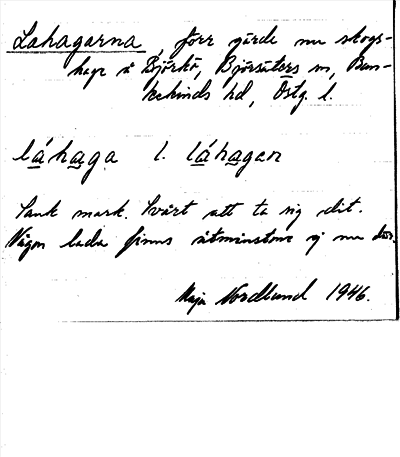 Lahagarna, förr gärde nu skogs-
hage å Björkö, Björsäters sn, Ban-
kekinds hd, Östg. l.
láhaga l. láhagan
Sank mark. Svårt att ta sig dit.
Någon lada finns åtminstone ej nu där.
Maja Nordlund 1946.